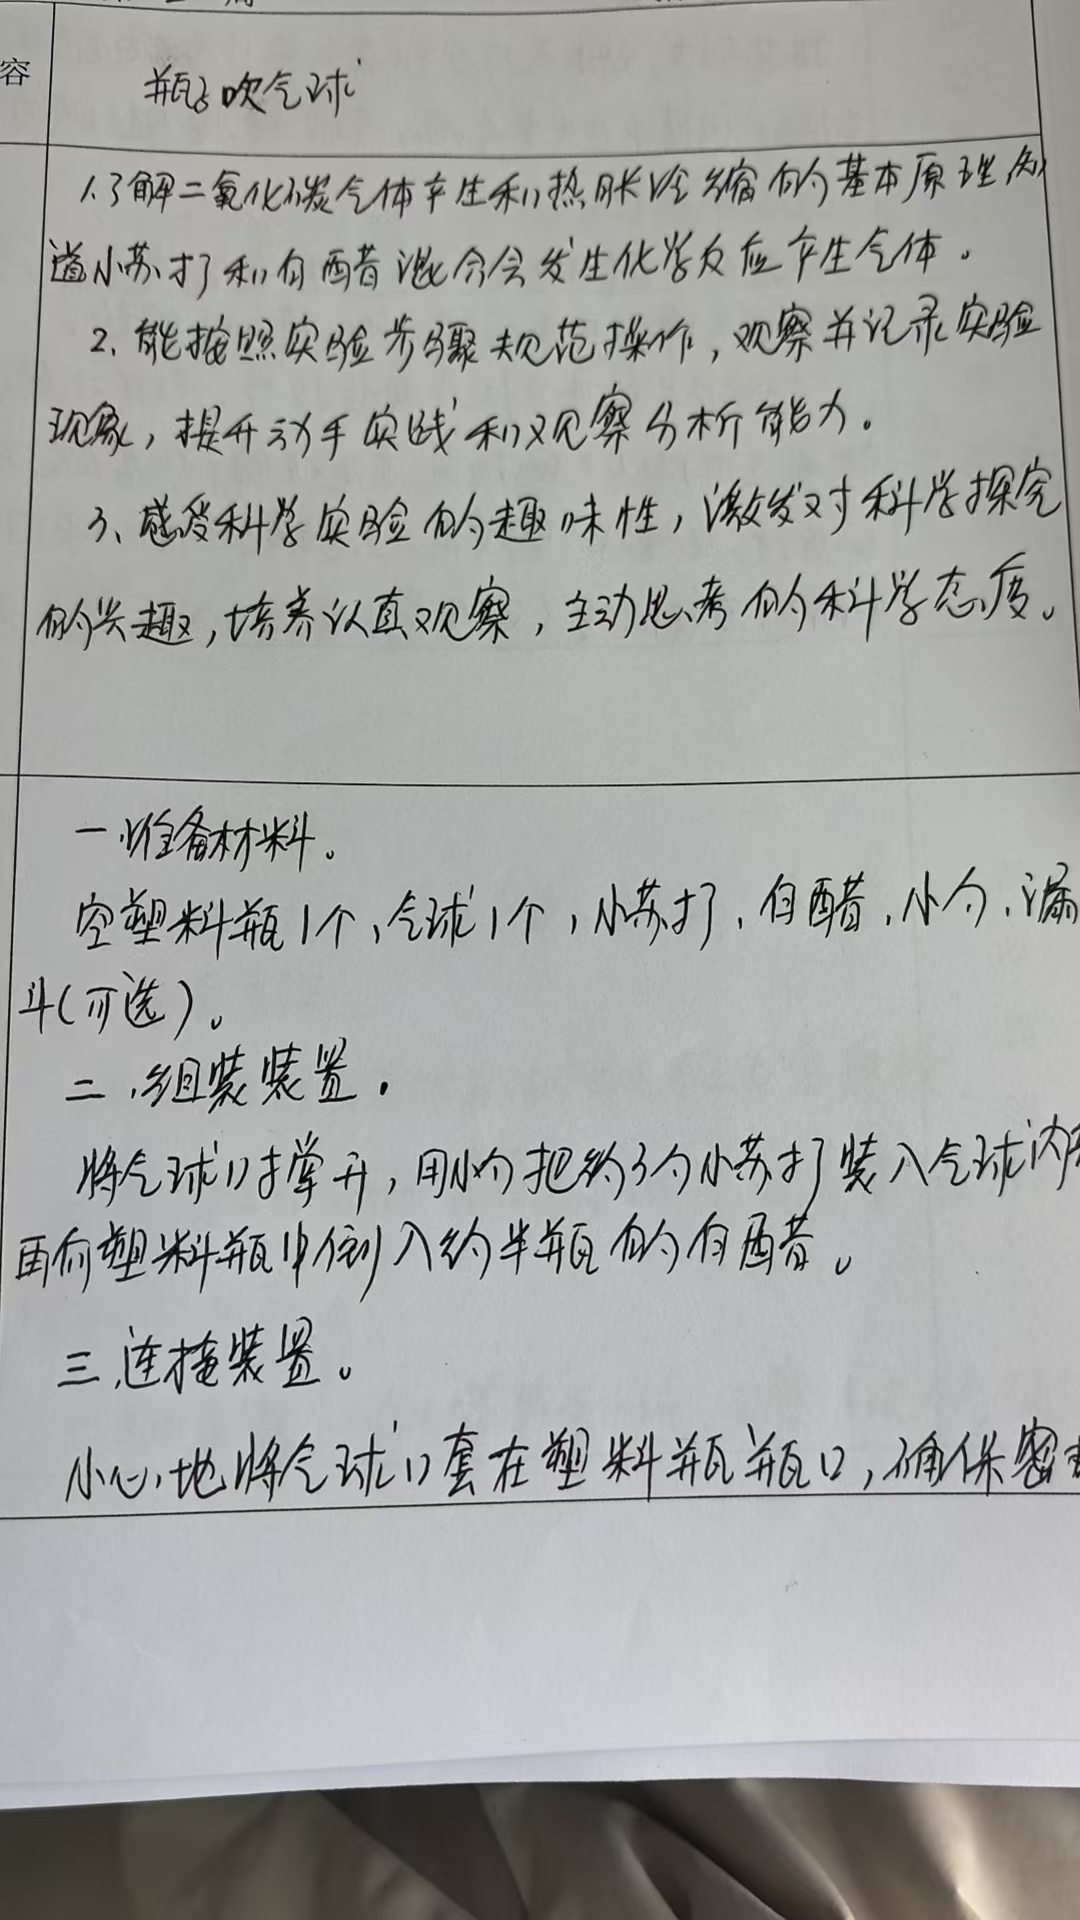 容
瓶子吹气球
1.了解二氧化碳气体产生和热胀冷缩的基本原理知
道小苏打和白醋混合会发生化学反应产生气体。
2、能按照实验步骤规范操作,观察并记录实验
现象,提升动手实践和观察分析能力。
3、感受科学实验的趣味性,激发对科学探究
的兴趣,培养认真观察,主动思考的科学态度。
一、准备材料。
空塑料瓶1个,气球1个,小苏打、白醋,小勺、漏
斗(可选)。
二、组装装置.
将气球口撑开,用小勺把约3勺小苏打装入气球内
再向塑料瓶中倒入约半瓶的白醋。
三、连接装置。
小心地将气球口套在塑料瓶瓶口,确保密